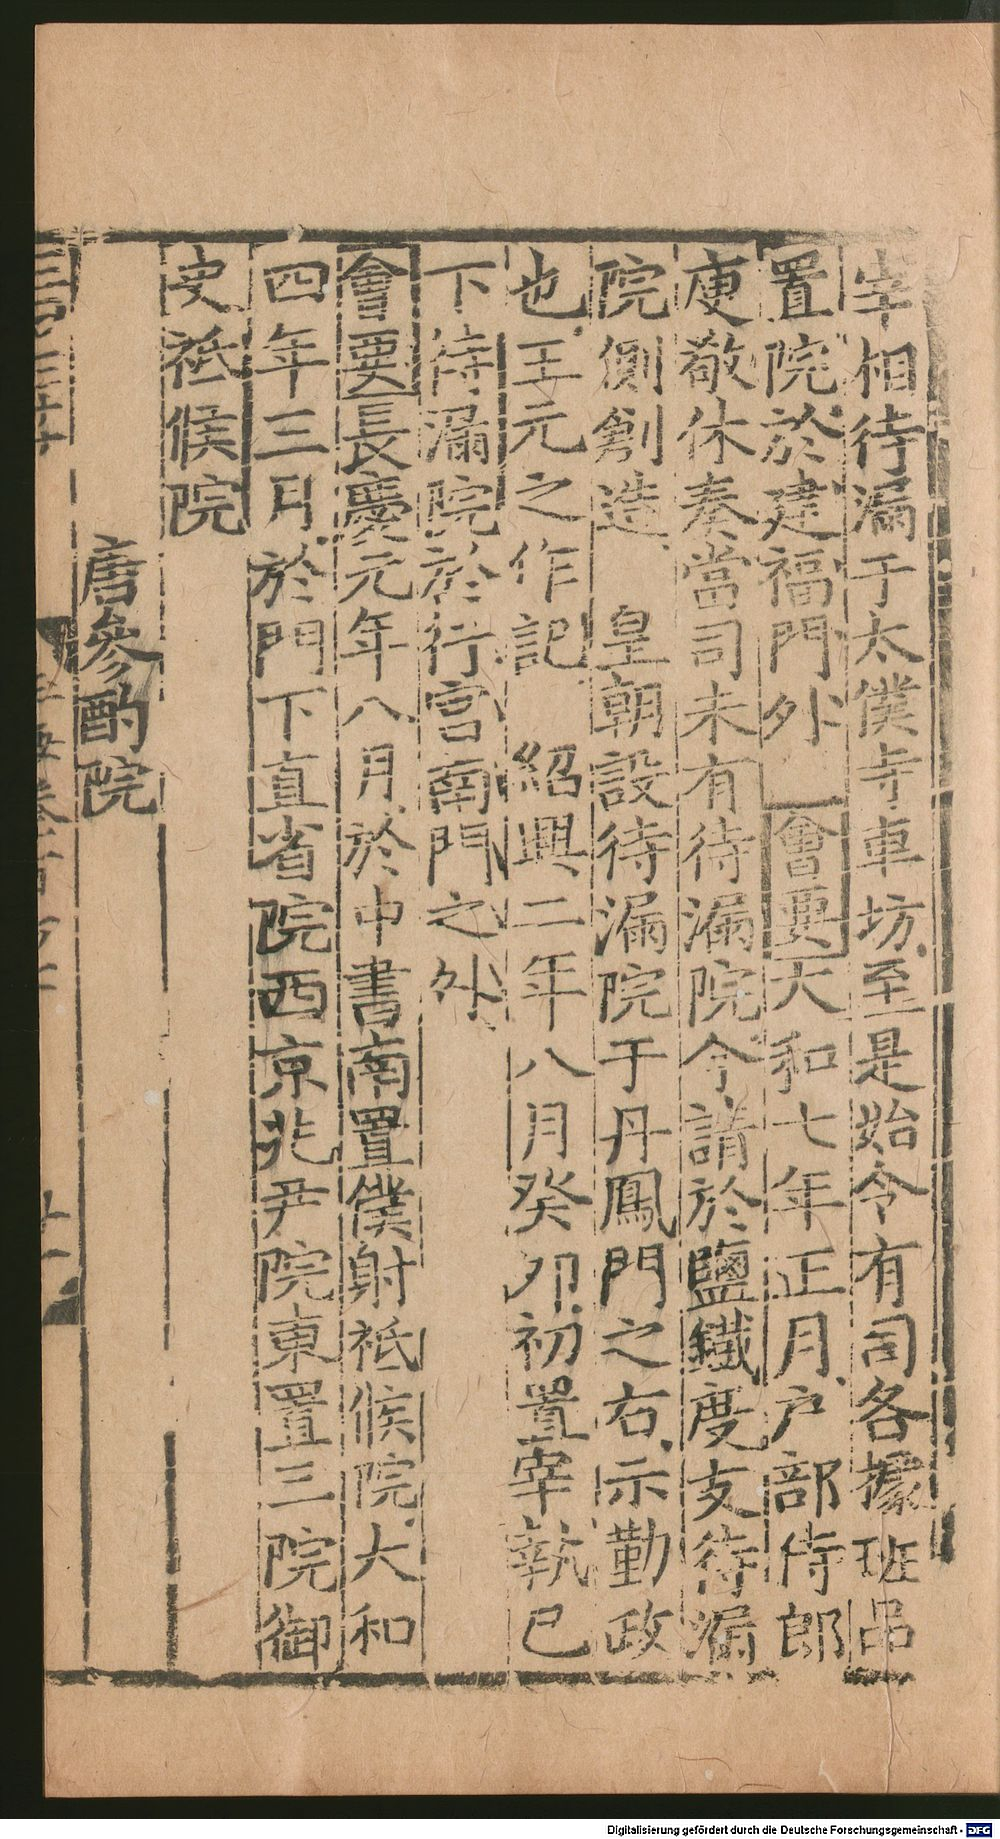 宰相待漏于太僕寺車坊至是始令有司各據班品
置院於建福門外 會要大和七年正月戶部侍郎
庾敬休奏當司未有待漏院今請於鹽鐵度支待漏
院側創造 皇朝設待漏院于丹鳳門之右示勤政
也王元之作記 紹興二年八月癸卯初置宰執已
下待漏院於行宮南門之外
會要長慶元年八月於中書南置僕射祗候院大和
四年三月於門下直省院西京兆尹院東置三院御
史祗候院
唐參酌院
Digitalisierung gefördert durch die Deutsche Forschungsgemeinschaft - DFG